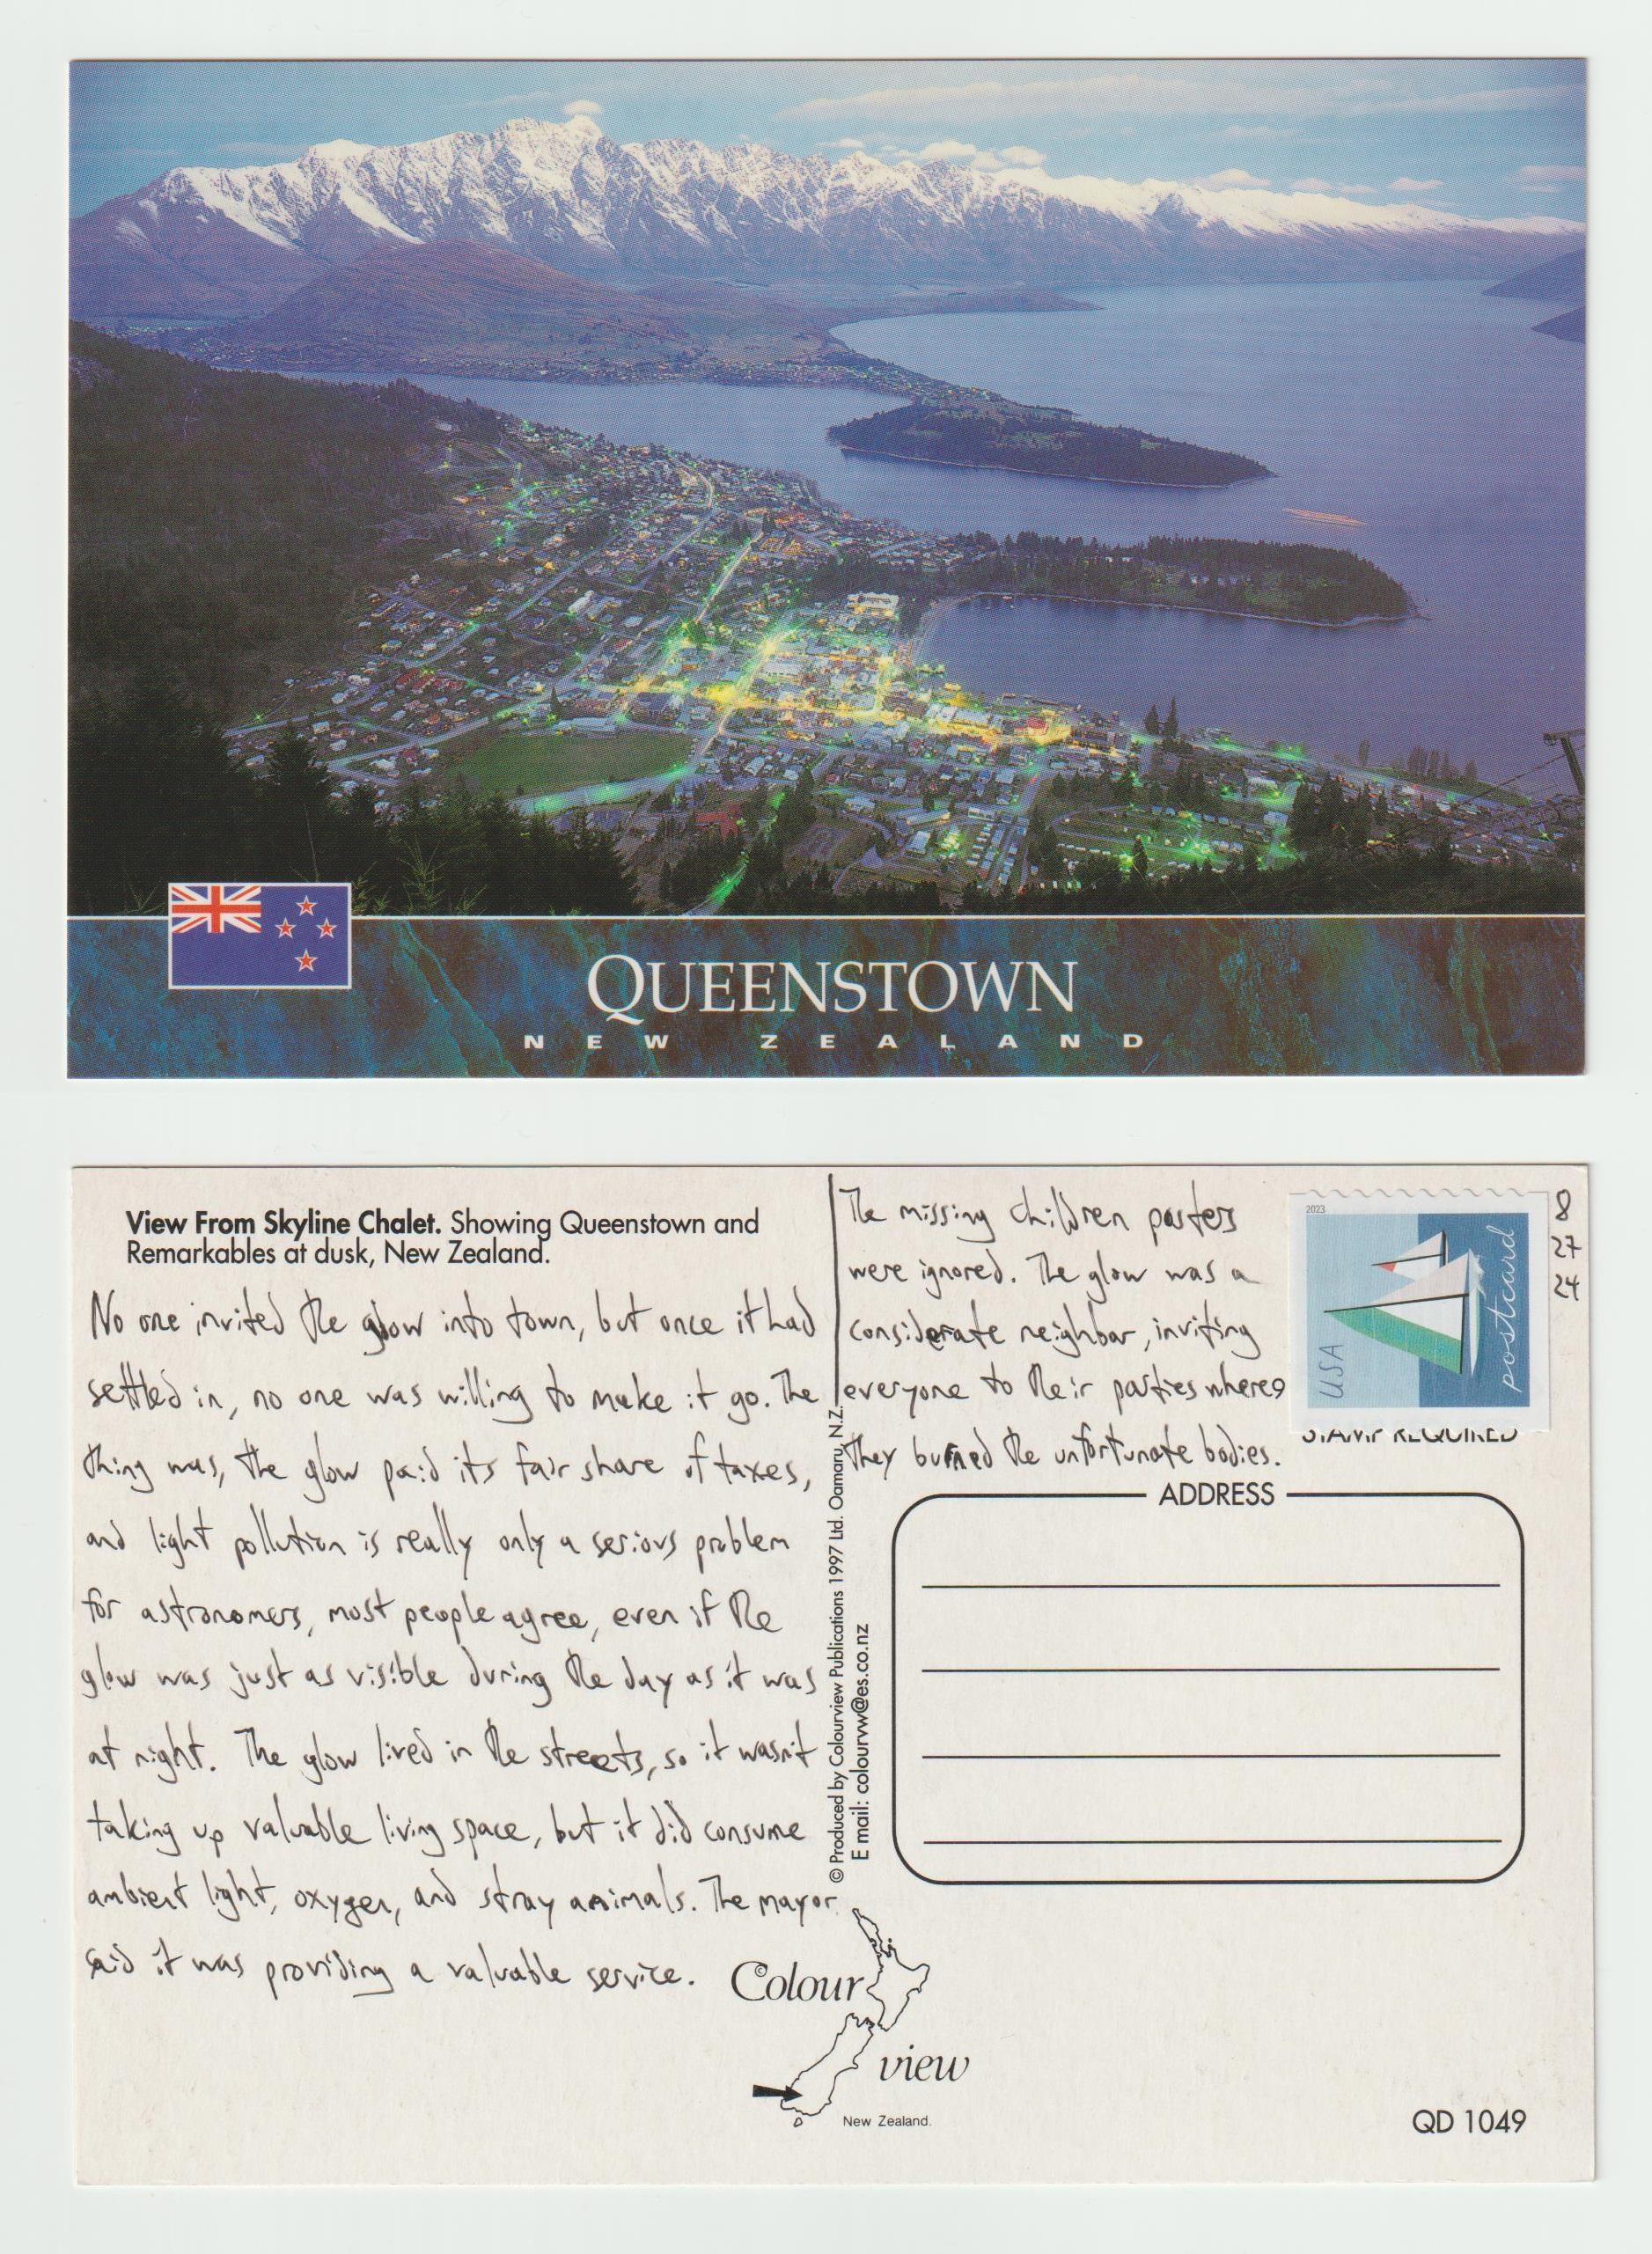 QUEENSTOWN
NEW ZEALAND
View From Skyline Chalet. Showing Queenstown and
Remarkables at dusk, New Zealand.
No one invited the glow into town, but once it had
settled in, no one was willing to make it go. The
thing was, the glow paid its fair share of taxes,
and light pollution is really only a serious problem
for astronomers, most people agree, even if the
glow was just as visible during the day as it was
at night. The glow lived in the streets, so it wasn't
taking up valuable living space, but it did consume
ambient light, oxygen, and stray animals. The mayor
said it was providing a valuable service.
The missing children posters
were ignored. The glow was a
considerate neighbor, inviting
everyone to their parties where
they burned the unfortunate bodies.
2023
USA
postcard
8
27
24
STAMP REQUIRED
ADDRESS
© Produced by Colourview Publications 1997 Ltd. Oamaru, N.Z.
E mail: colourvw@es.co.nz
©Colour
view
New Zealand.
QD 1049